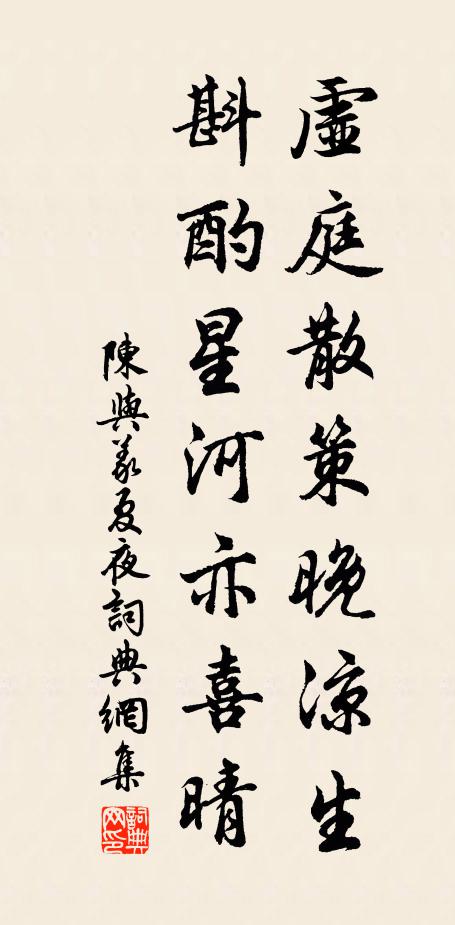 虛庭散策晚涼生
斟酌星河亦喜晴
陳與義夏夜詞典網集
詞典網印